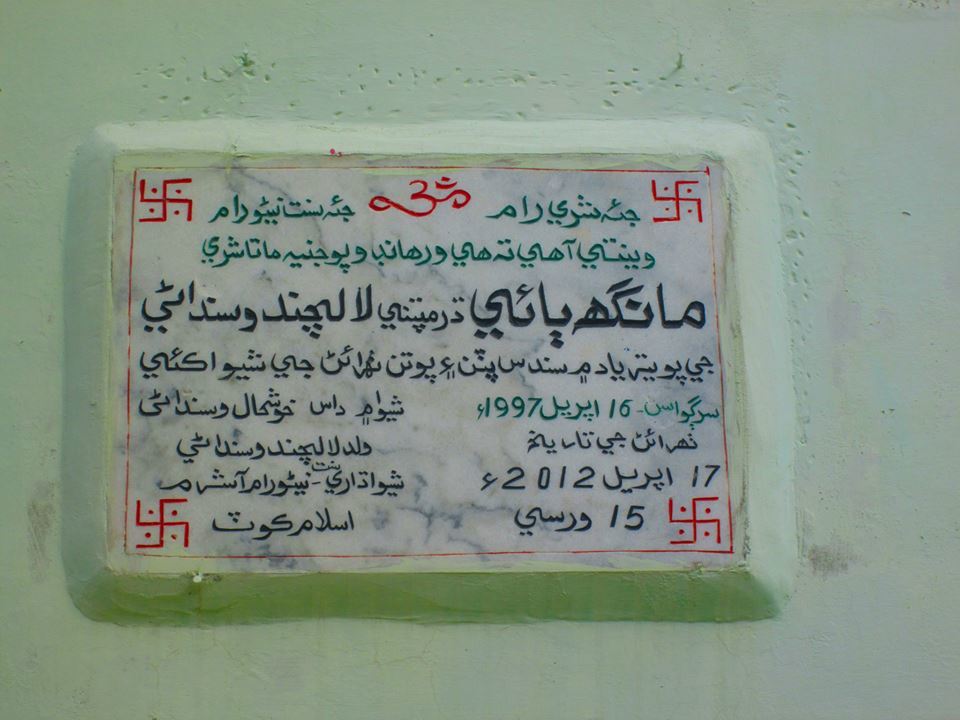 جئہ شري رام ॐ جئہ سنت نيٹورام
وينتي آهي تہ هي ورهاند وپوجنيہ ماتاشري
مانگھ ٻائي ڌرمپتني لالچند وسنداڻي
جي پويتر ياد ۾ سندس پٽن ۽ پوتن ٺهرائڻ جي شيوا ڪئي
سرڳواس - 16 اپريل 1997ء
شيوا ۾ داس خوشمال وسنداڻي
ٺهرائڻ جي تاريخ
ولد لالچند وسنداڻي
17 اپريل 2012ء
شيواڌاري سنت - نيٹورام آشرم
15 ورسي
اسلام ڪوٽ